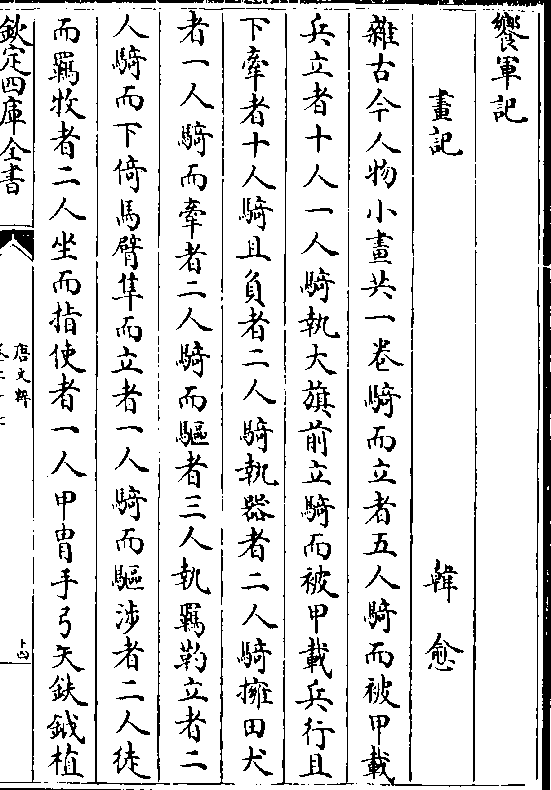 饗軍記
畫記
韓愈
雜古今人物小畫共一卷騎而立者五人騎而被甲載
兵立者十人一人騎執大旗前立騎而被甲載兵行且
下牽者十人騎且負者二人騎執器者二人騎擁田犬
者一人騎而牽者二人騎而驅者三人執羈靮立者二
人騎而下倚馬臂隼而立者一人騎而驅涉者二人徒
而羈牧者二人坐而指使者一人甲冑手弓矢鈇鉞植
欽定四庫全書
唐文粹